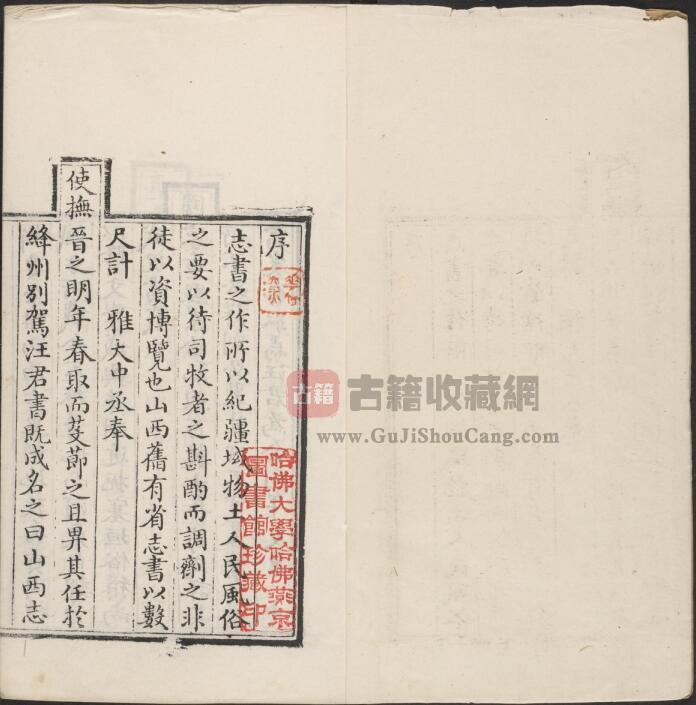 序
志書之作所以紀疆域物土人民風俗
之要以待司牧者之斟酌而調劑之非
徒以資博覽也山西舊有省志書以數
尺計 雅大中丞奉
使撫晉之明年春取而芟莭之且畀其任於
絳州别駕汪君書既成名之曰山西志
哈佛大學哈佛燕京
圖書館珍藏印
古籍 古籍收藏網
www.GuJiShouCang.com